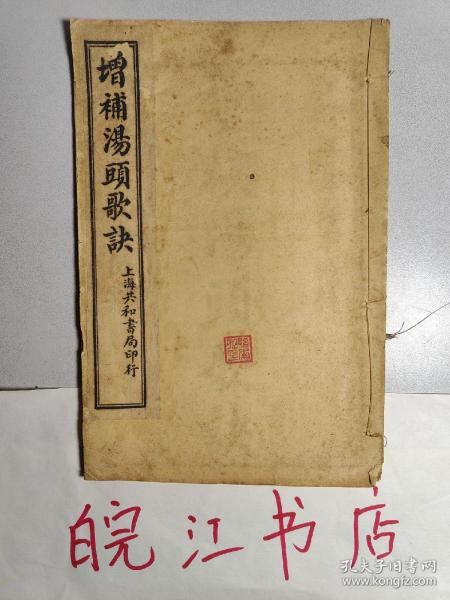 增補湯頭歌訣
上海共和書局印行
皖江书店
孔夫子旧书网
www.kongfz.com